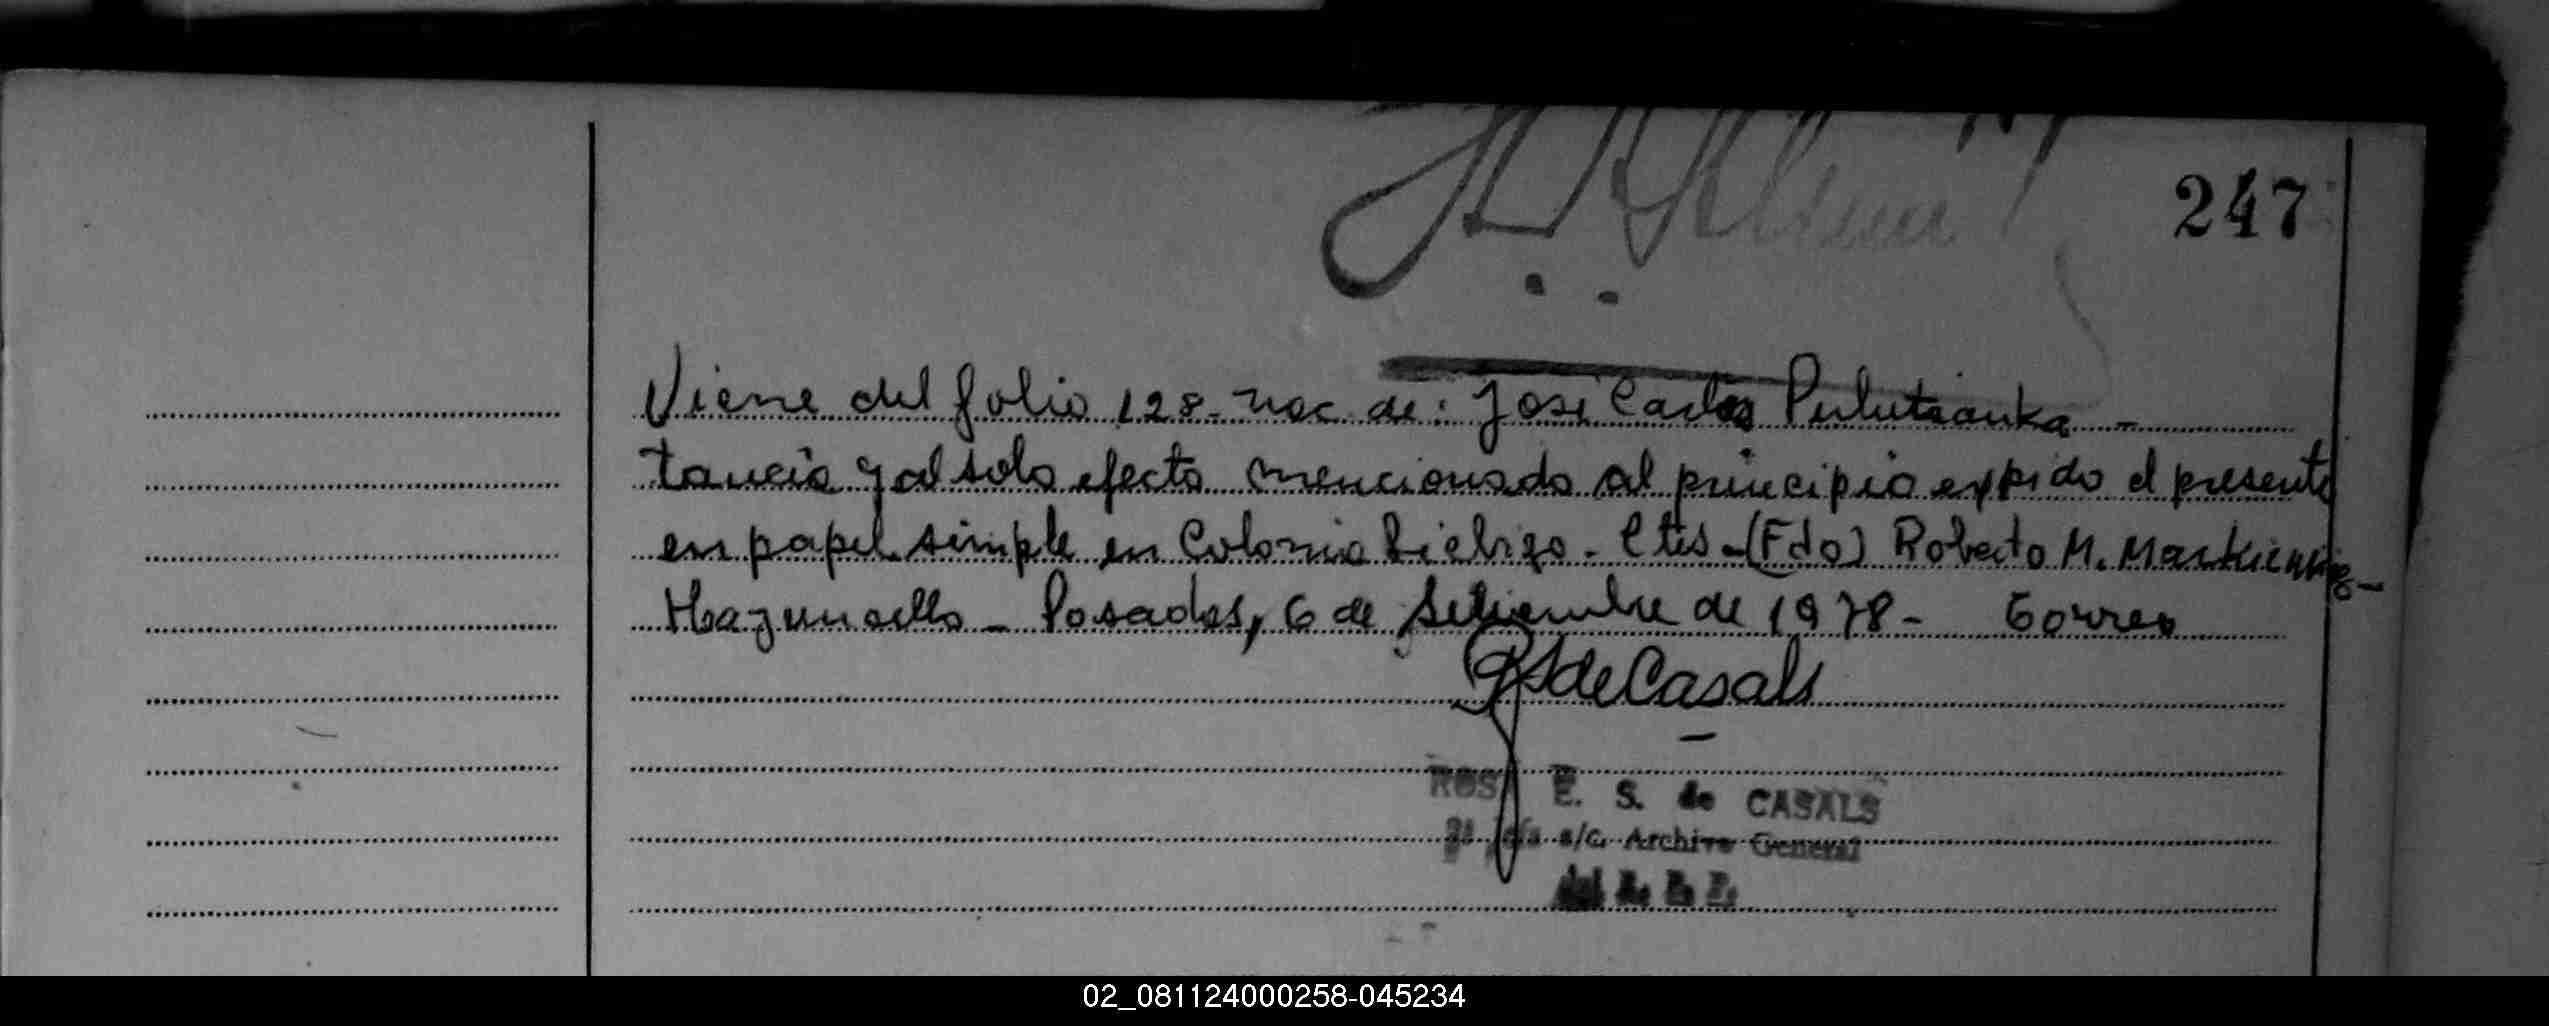 247
Viene del folio 128 - nac de: José Carlos
tancia y al solo efecto mencionado al principio expido el presente
en papel simple en Colonia Liebigs - Ctes - (Fdo) Roberto M.
Hay un sello - Posadas, 6 de Setiembre de 1978 -
RS de Casals
ROSA E. S. de CASALS
2ª Jefa a/c. Archivo General
del R. P. P.
02_081124000258-045234